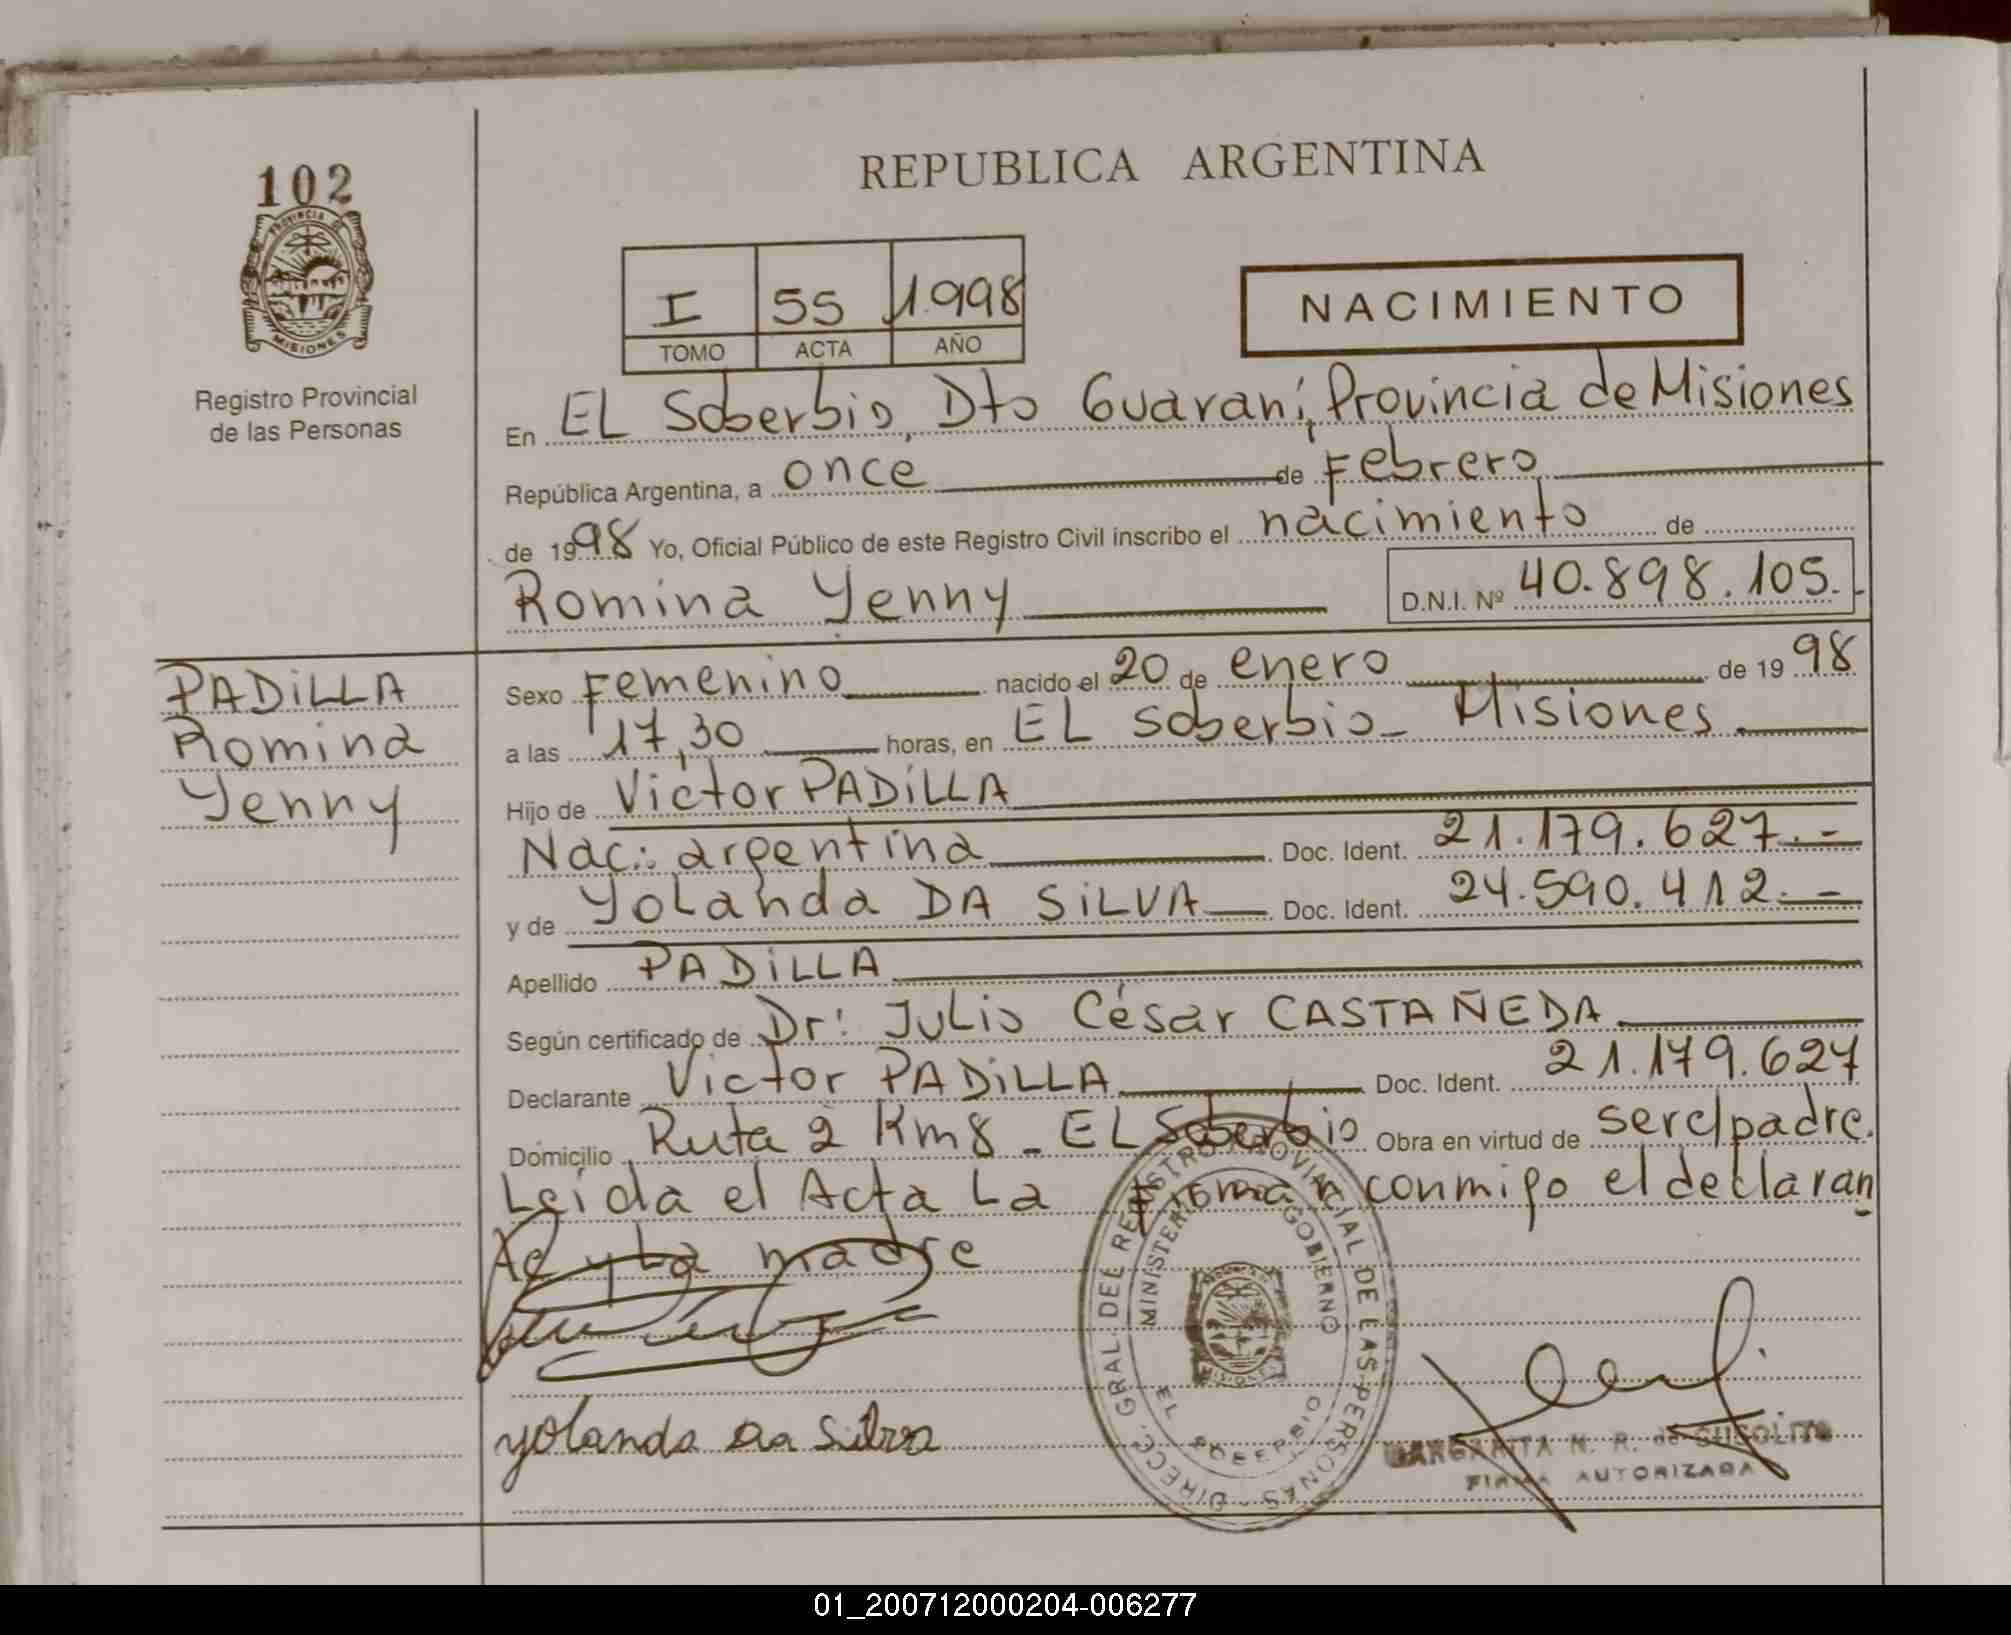 102
PROVINCIA DE
MISIONES
Registro Provincial
de las Personas
REPUBLICA ARGENTINA
I 55 1.998
TOMO ACTA AÑO
NACIMIENTO
En EL Soberbio, Dto Guaraní, Provincia de Misiones
República Argentina, a once de Febrero
de 1998 Yo, Oficial Público de este Registro Civil inscribo el nacimiento de
Romina Yenny D.N.I. Nº 40.898.105.-
PADiLLA
Romina
Yenny
Sexo Femenino nacido el 20 de enero de 1998
a las 17,30 horas, en EL Soberbio - Misiones
Hijo de Victor PADiLLA
Nac.: argentina Doc. Ident. 21.179.627.-
y de Yolanda DA SiLVA Doc. Ident. 24.590.412.-
Apellido PADiLLA
Según certificado de Dr: Julio César CASTAÑEDA
Declarante Victor PADiLLA Doc. Ident. 21.179.627
Domicilio Ruta 2 Km 8 - EL Soberbio Obra en virtud de ser el padre.
Leída el Acta La firman conmigo el declaran
te y La madre
yolanda da Silva
DIRECC. GRAL. DEL REGISTRO PROVINCIAL DE LAS PERSONAS
MINISTERIO GOBIERNO
EL SOBERBIO
MARGARITA N. R. de
FIRMA AUTORIZADA
01_200712000204-006277